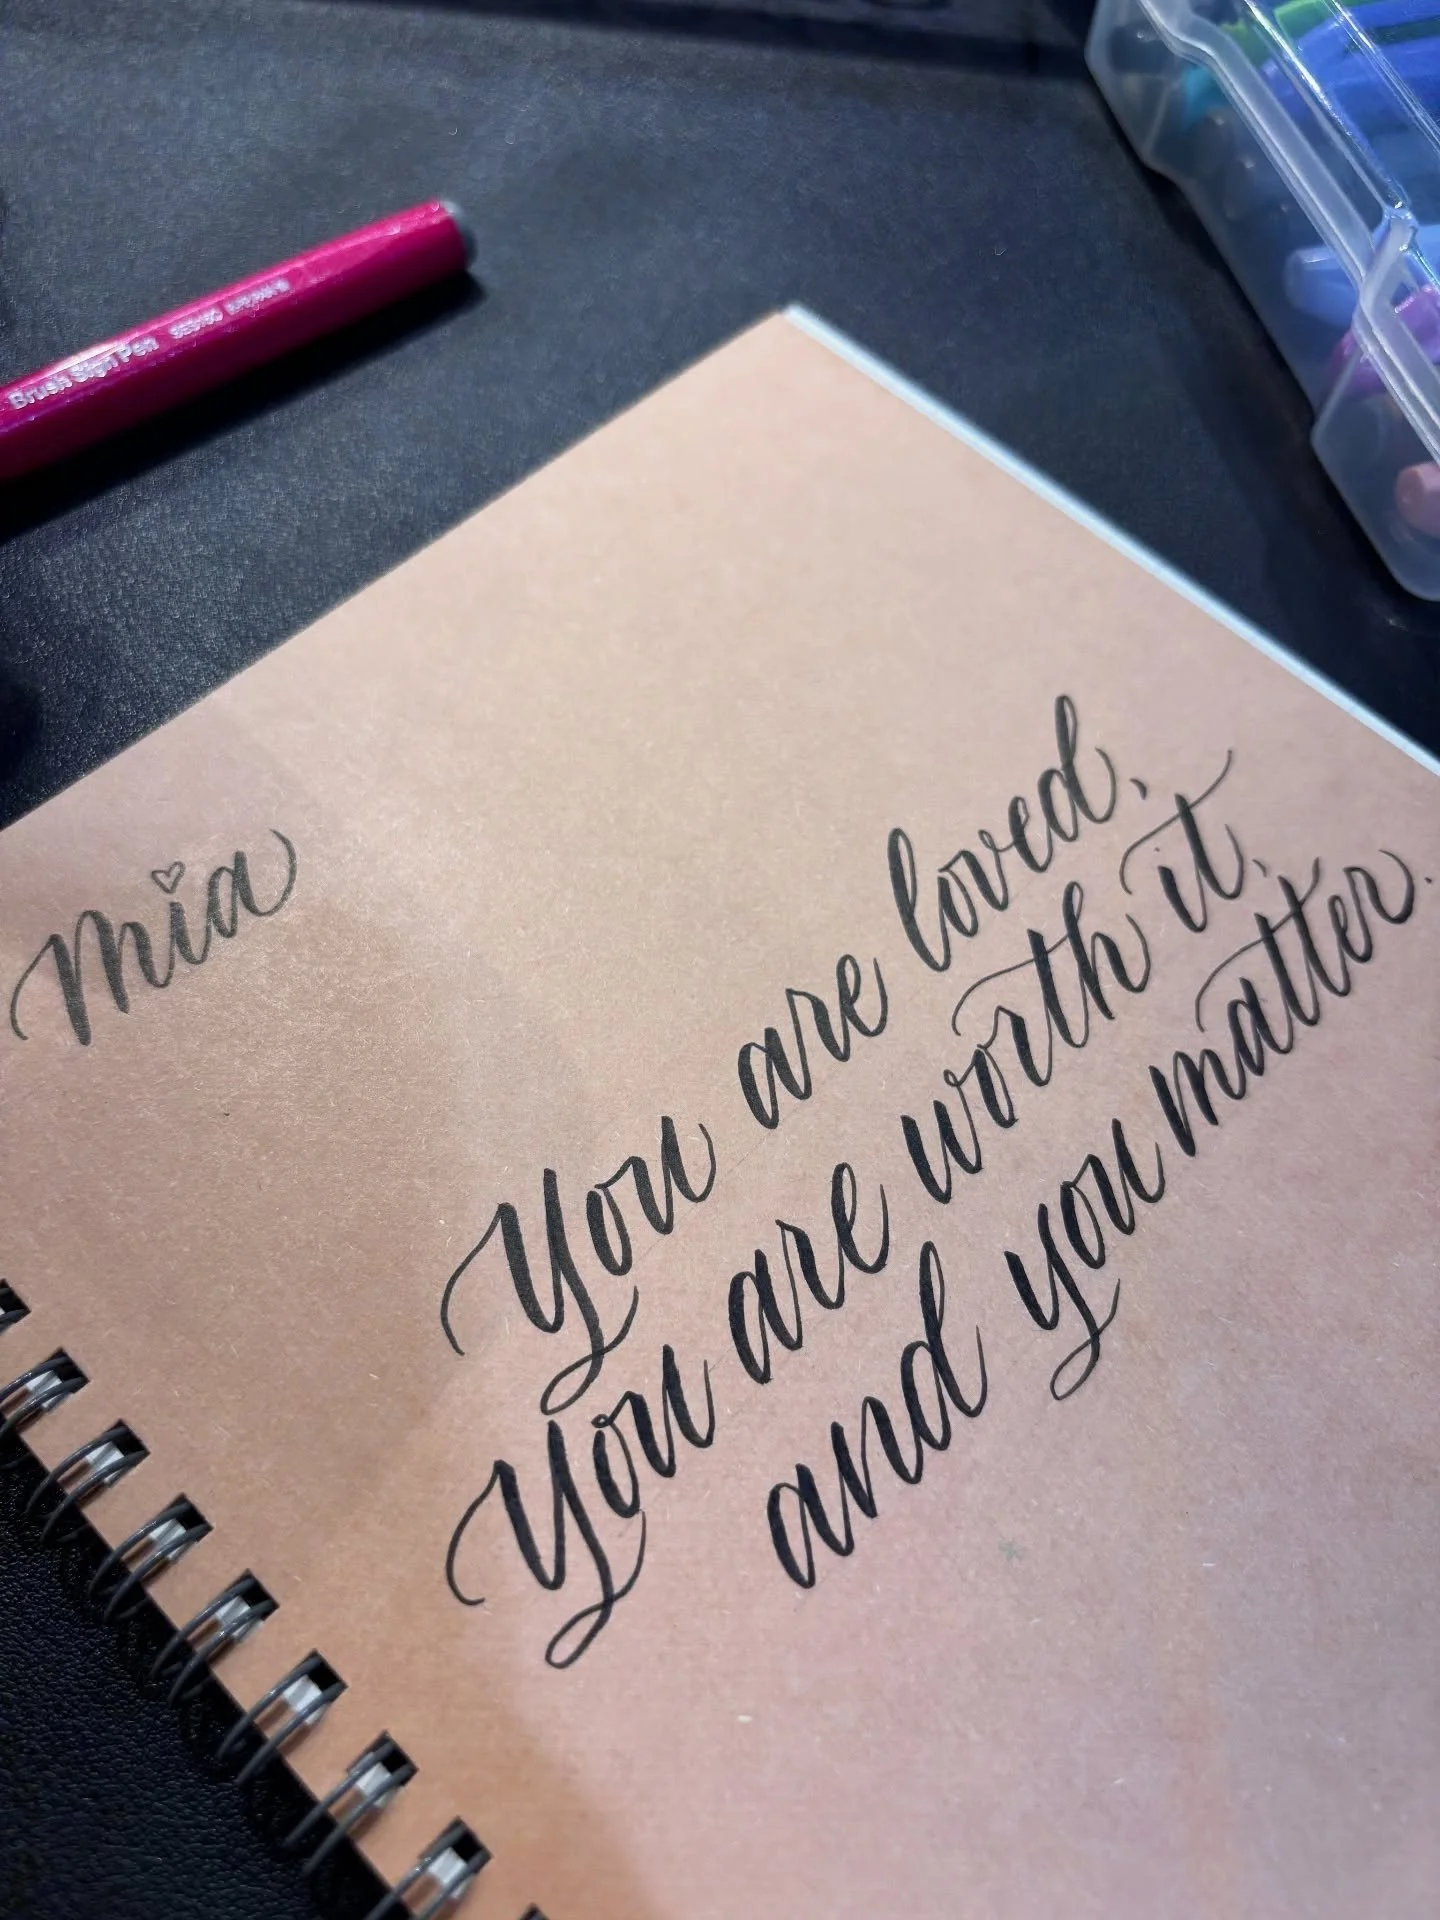 Brush Sign Pen
Mia
You are loved,
You are worth it,
and you matter.